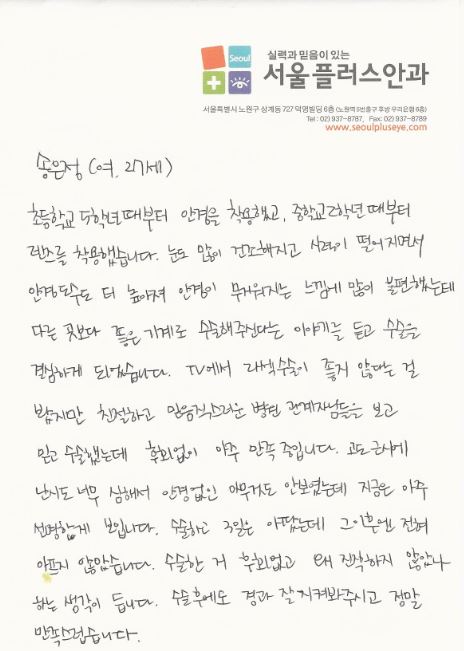 Seoul
실력과 믿음이 있는
서울플러스안과
서울특별시 노원구 상계동 727 덕영빌딩 6층 (노원역 5번출구 후방 우리은행 6층)
Tel : 02) 937-8787, Fax: 02) 937-8789
www.seoulpluseye.com
송은정 (여. 27세)
초등학교 5학년때부터 안경을 착용했고, 중학교 2학년 때부터
렌즈를 착용했습니다. 눈도 많이 건조해지고 시력이 떨어지면서
안경도수도 더 높아져 안경이 무거워지는 느낌에 많이 불편했는데
다른 곳보다 좋은 기계로 수술해주신다는 이야기를 듣고 수술을
결심하게 되었습니다. TV에서 라섹수술이 좋지 않다는 걸
봤지만 친절하고 믿음직스러운 병원 관계자님들을 보고
믿고 수술했는데 후회없이 아주 만족중입니다. 고도근시에
난시도 너무 심해서 안경없인 아무거도 안보였는데 지금은 아주
선명하게 보입니다. 수술하고 3일은 아팠는데 그이후엔 전혀
아프지 않았습니다. 수술한 거 후회없고 왜 진작하지 않았나
하는 생각이 듭니다. 수술후에도 경과 잘 지켜봐주시고 정말
만족스럽습니다.